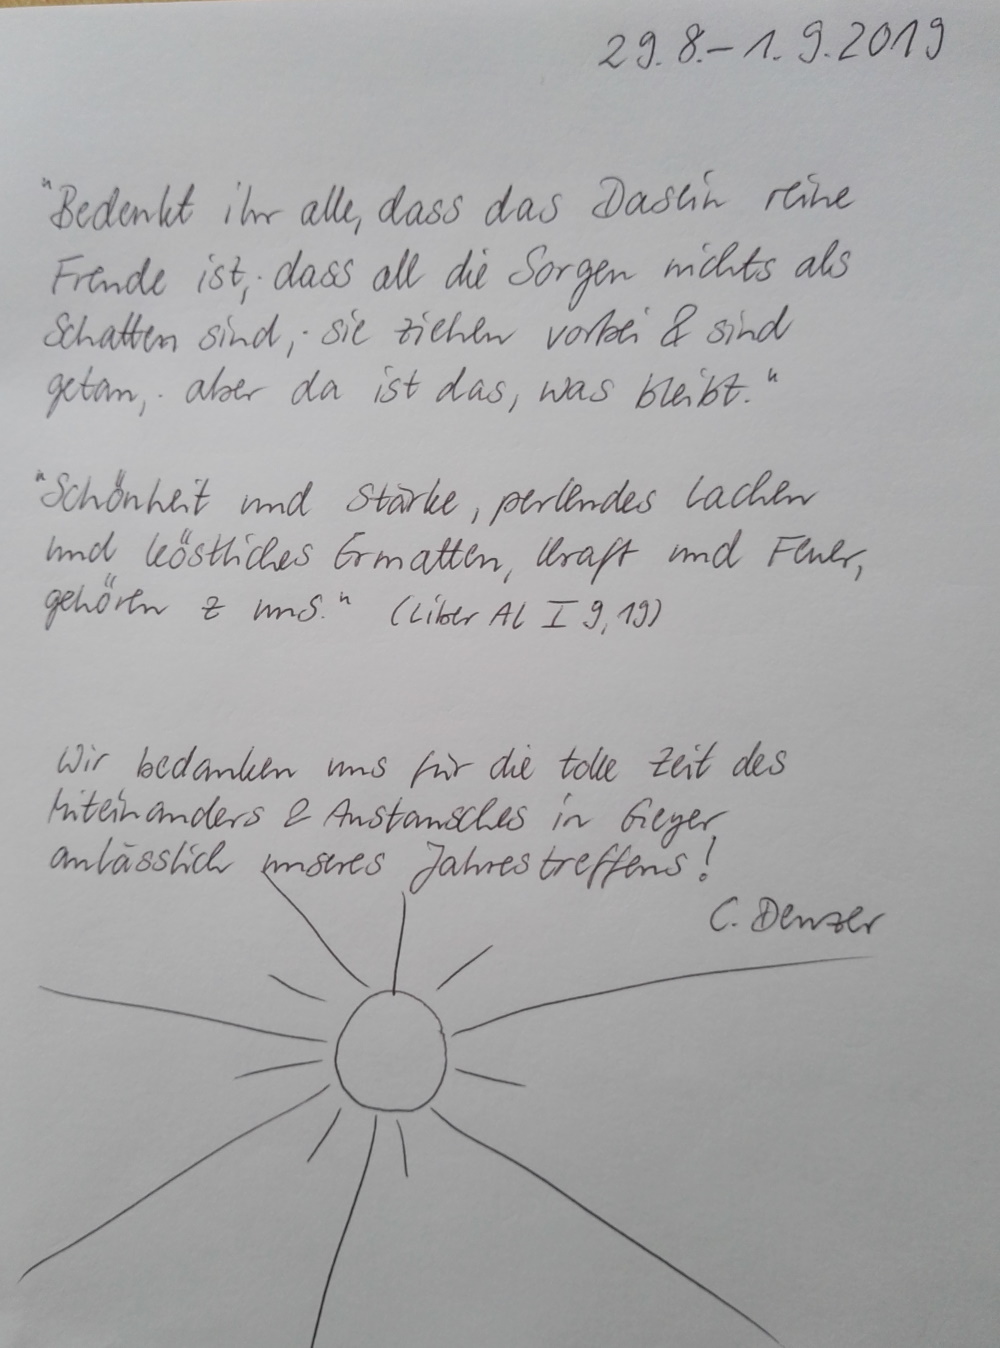 29.8.–1.9.2019
"Bedenkt ihr alle, dass das Dasein reine
Freude ist,· dass all die Sorgen nichts als
Schatten sind,· sie ziehen vorbei & sind
getan,· aber da ist das, was bleibt."
"Schönheit und Stärke, perlendes Lachen
und köstliches Ermatten, Kraft und Feuer,
gehören z uns." (Liber Al II 9,19)
Wir bedanken uns für die tolle Zeit des
Miteinanders & Austausches in Geyer
anlässlich unseres Jahrestreffens!
C. Denzer